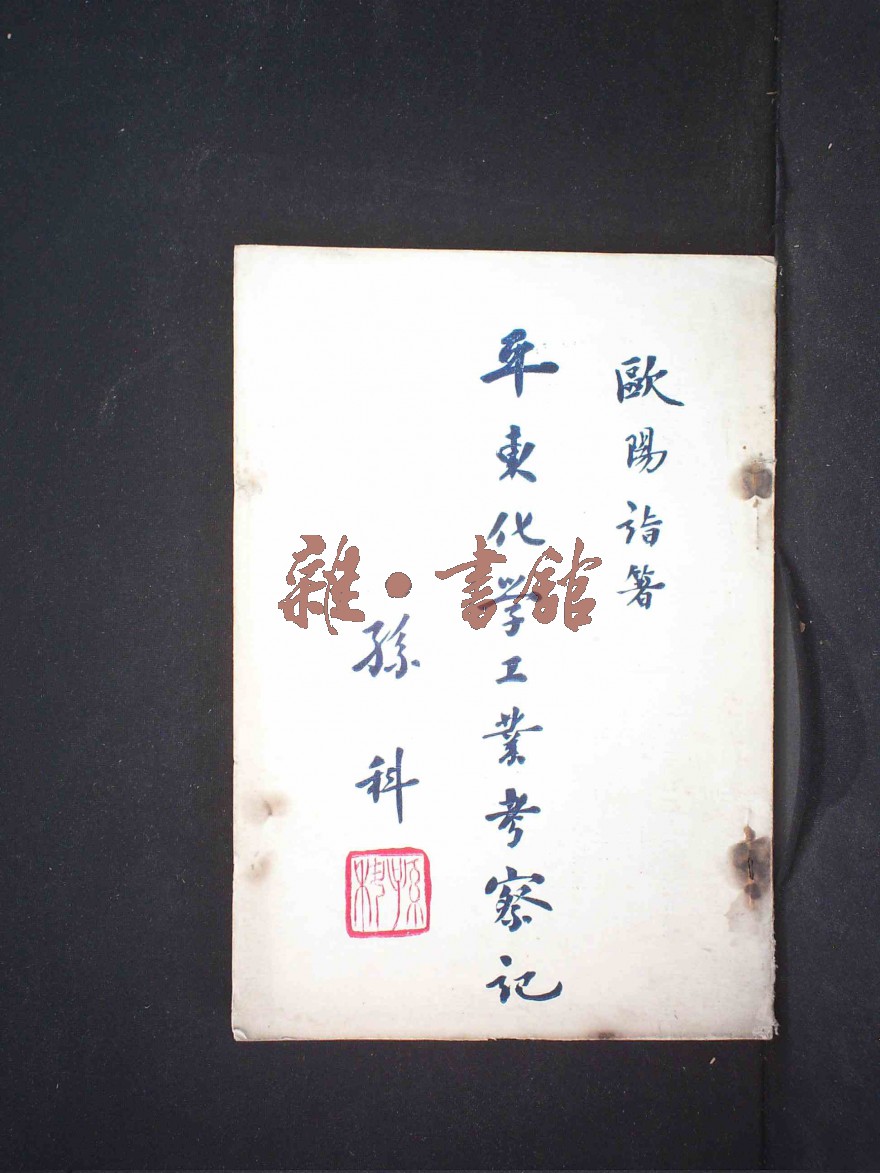 歐陽詣箸
平東化学工業考察記
孫科
孫科
雜·書館